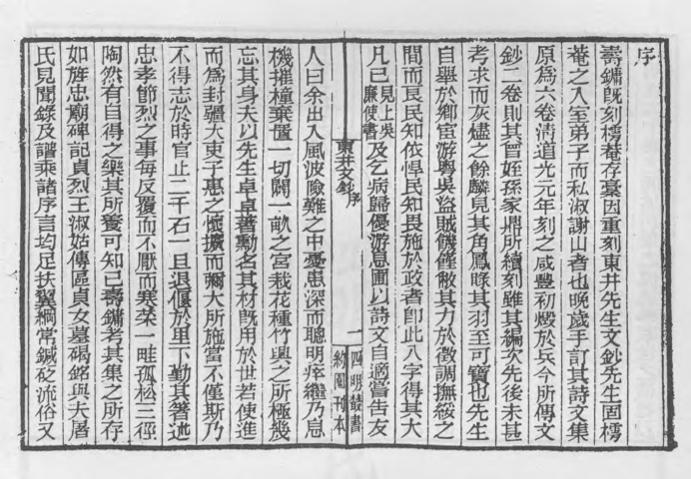 序
壽鏞既刻樗菴存藁因重刻東井先生文鈔先生固樗
菴之入室弟子而私淑謝山者也晚歲手訂其詩文集
原為六卷清道光元年刻之咸豐初燬於兵今所傳文
鈔二卷則其曾姪孫家鼎所續刻雖其編次先後未甚
考求而灰燼之餘麟見其角鳳睇其羽至可寶也先生
自舉於鄉宦游粵吳盜賊饑饉敝其力於徵調撫綏之
間而艮民知依悍民知畏施於政者卽此八字得其大
凡已見上吳廉使書及乞病歸優游息圃以詩文自適嘗告友
東井文鈔 序
一
四明叢書
約園刊本
人曰余出入風波險難之中憂患深而聰明瘁繼乃息
機摧橦棄置一切闢一畝之宮栽花種竹與之所極幾
忘其身夫以先生卓卓著勳名其材既用於世若使進
而為封疆大吏子惠之懷擴而彌大所施當不僅斯乃
不得志於時官止二千石一旦退偃於里下勤其箸述
忠孝節烈之事每反覆而不厭而寒菜一畦孤松三徑
陶然有自得之樂其所養可知已壽鏞考其集之所存
如旌忠廟碑記貞烈王淑姑傳區貞女墓碣銘與夫屠
氏見聞錄及譜乘諸序言均足扶翼綱常鍼砭流俗又